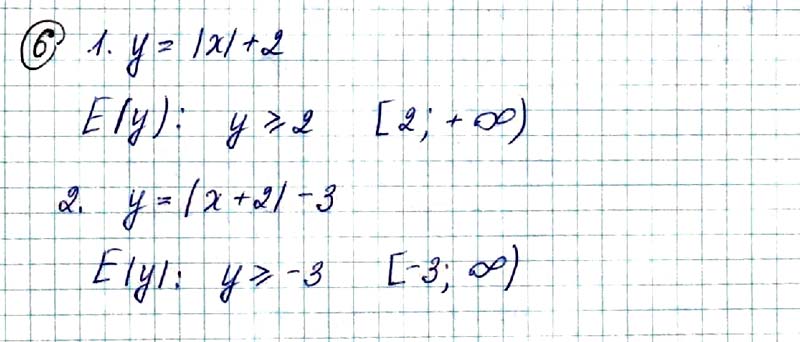 6 1. y = |x| + 2
E(y): y ⩾ 2 [2; + ∞)
2. y = |x + 2| - 3
E(y): y ⩾ -3 [-3; ∞)